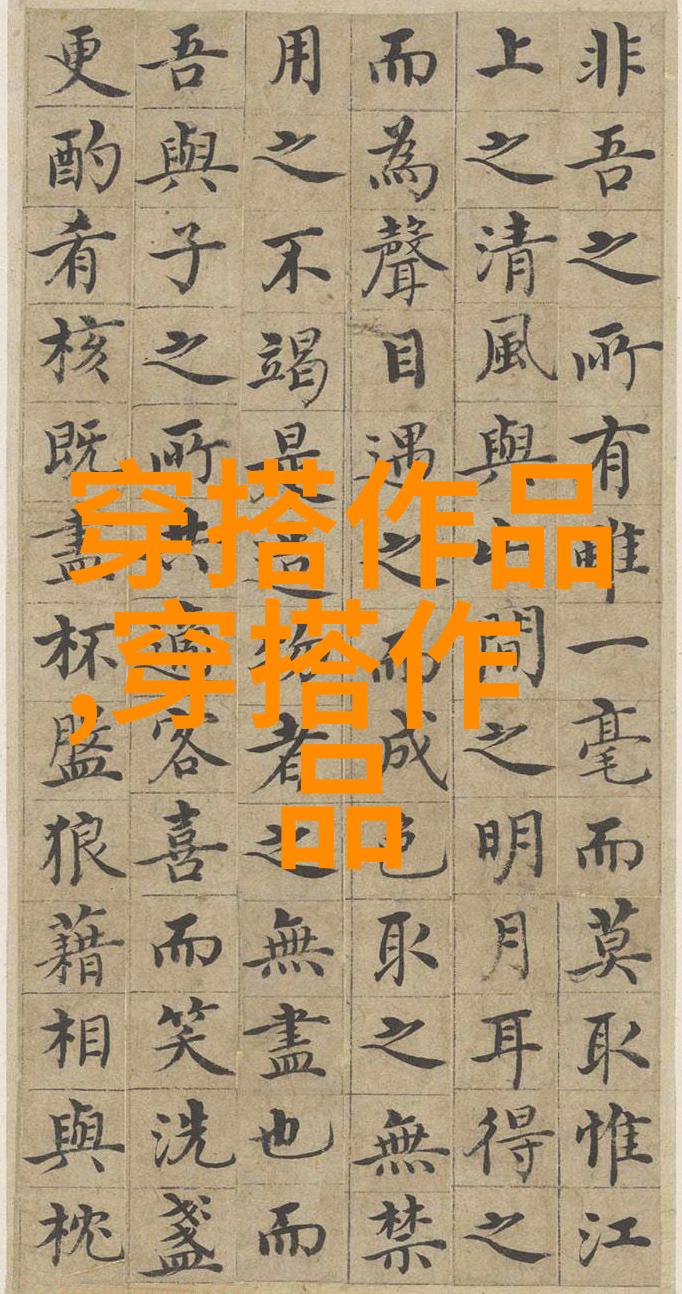 非吾之所有雖一毫而莫取惟江
上之清風與山間之明月耳得之
而為聲目遇之而成色取之無禁
用之不竭是造物者之無盡也而
吾與子之所共適客喜而笑洗盞
更酌肴核既盡杯盤狼藉相與枕
穿搭作品
,穿搭作
品